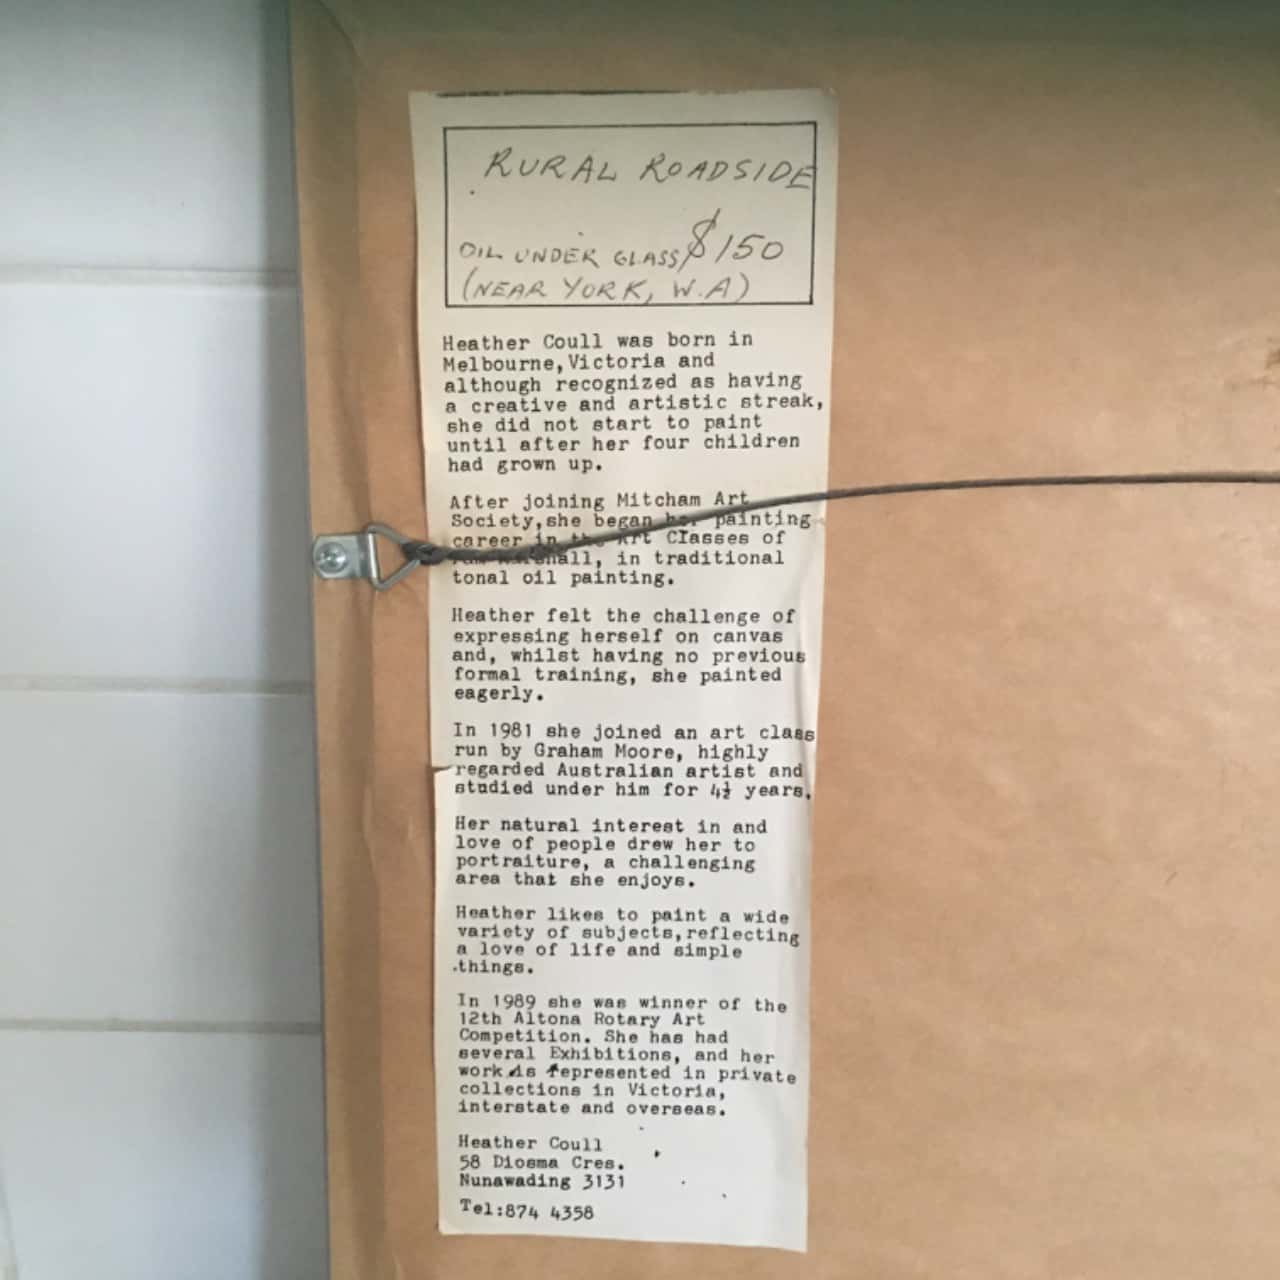 RURAL ROADSIDE
OIL UNDER GLASS $150
(NEAR YORK, W.A)
Heather Coull was born in
Melbourne,Victoria and
although recognized as having
a creative and artistic streak,
she did not start to paint
until after her four children
had grown up.
After joining Mitcham Art
Society,she began her painting
career in the Art Classes of
in traditional
tonal oil painting.
Heather felt the challenge of
expressing herself on canvas
and, whilst having no previous
formal training, she painted
eagerly.
In 1981 she joined an art class
run by Graham Moore, highly
regarded Australian artist and
studied under him for 4½ years.
Her natural interest in and
love of people drew her to
portraiture, a challenging
area that she enjoys.
Heather likes to paint a wide
variety of subjects,reflecting
a love of life and simple
things.
In 1989 she was winner of the
12th Altona Rotary Art
Competition. She has had
several Exhibitions, and her
work is represented in private
collections in Victoria,
interstate and overseas.
Heather Coull
58 Diosma Cres.
Nunawading 3131
Tel:874 4358